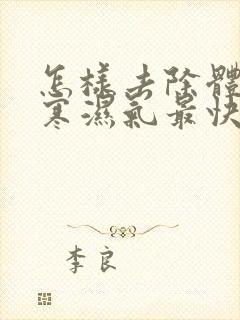 怎樣去除體
寒濕氣最快
李良